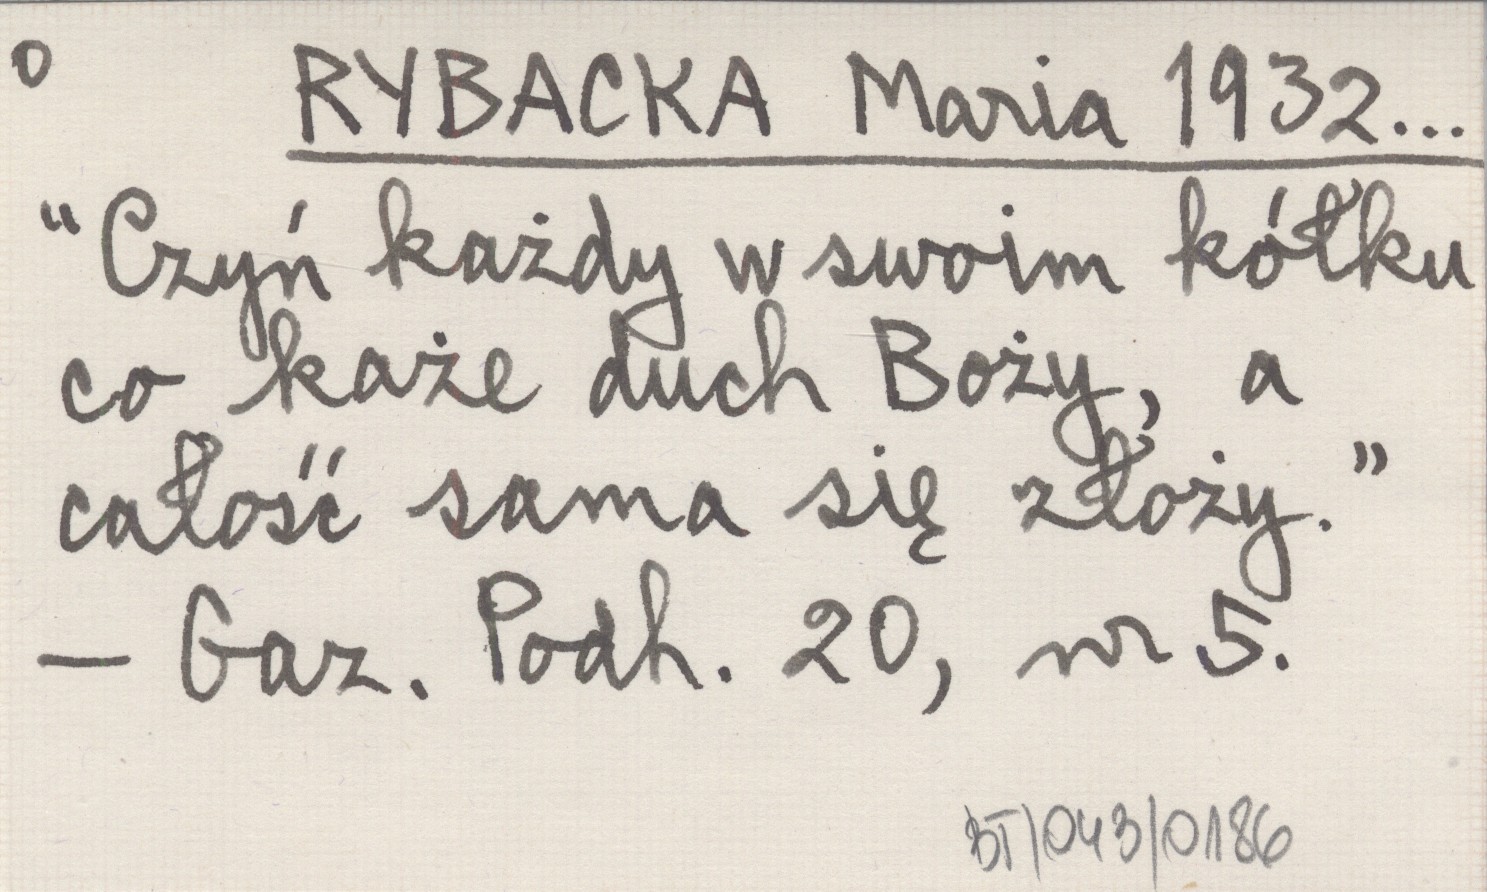 o RYBACKA Maria 1932...
"Czyń każdy w swoim kółku
co każe duch Boży, a
całość sama się złoży."
— Gaz. Podh. 20, nr 5.
BT/043/0186